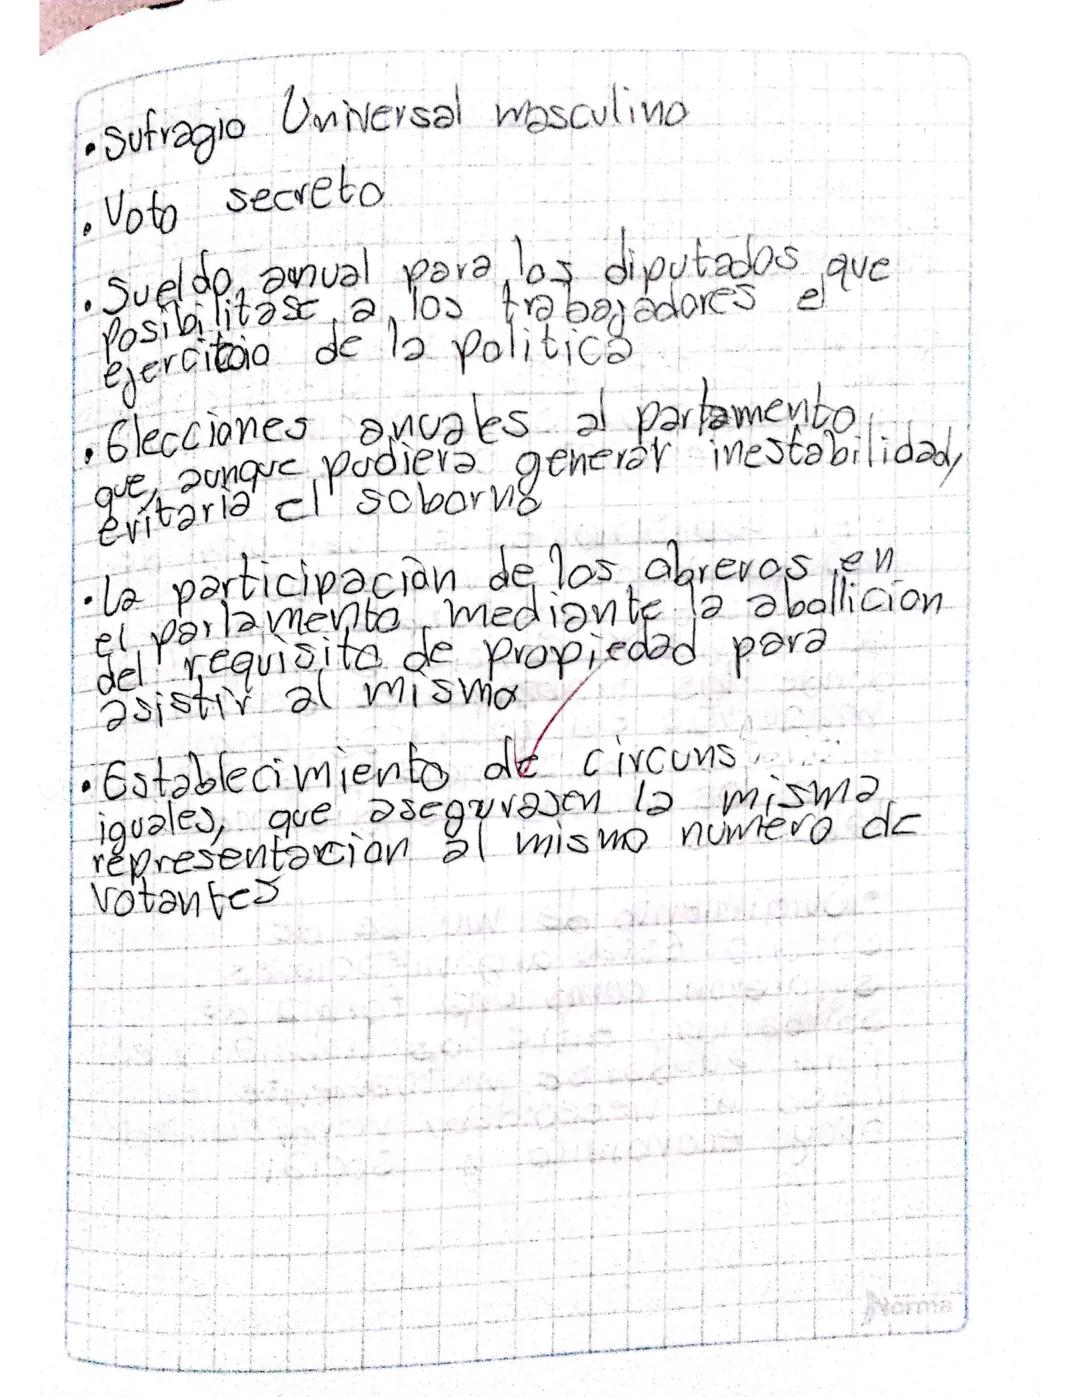 • Sufragio Universal masculino
• Voto secreto
• Sueldo anual para los diputados que
posibilitase a los trabajadores el
ejercitoio de la politica
• Elecciones anuales al parlamento
que, aunque pudiera generar inestabilidad,
evitaria el soborno
• la participaciòn de los obreros en
el parlamento mediante la abollicion
del requisito de propiedad para
asistir al mismo
• Establecimiento de circuns
iguales, que asegurasen la misma
representacion al mismo numero de
votantes
Norma